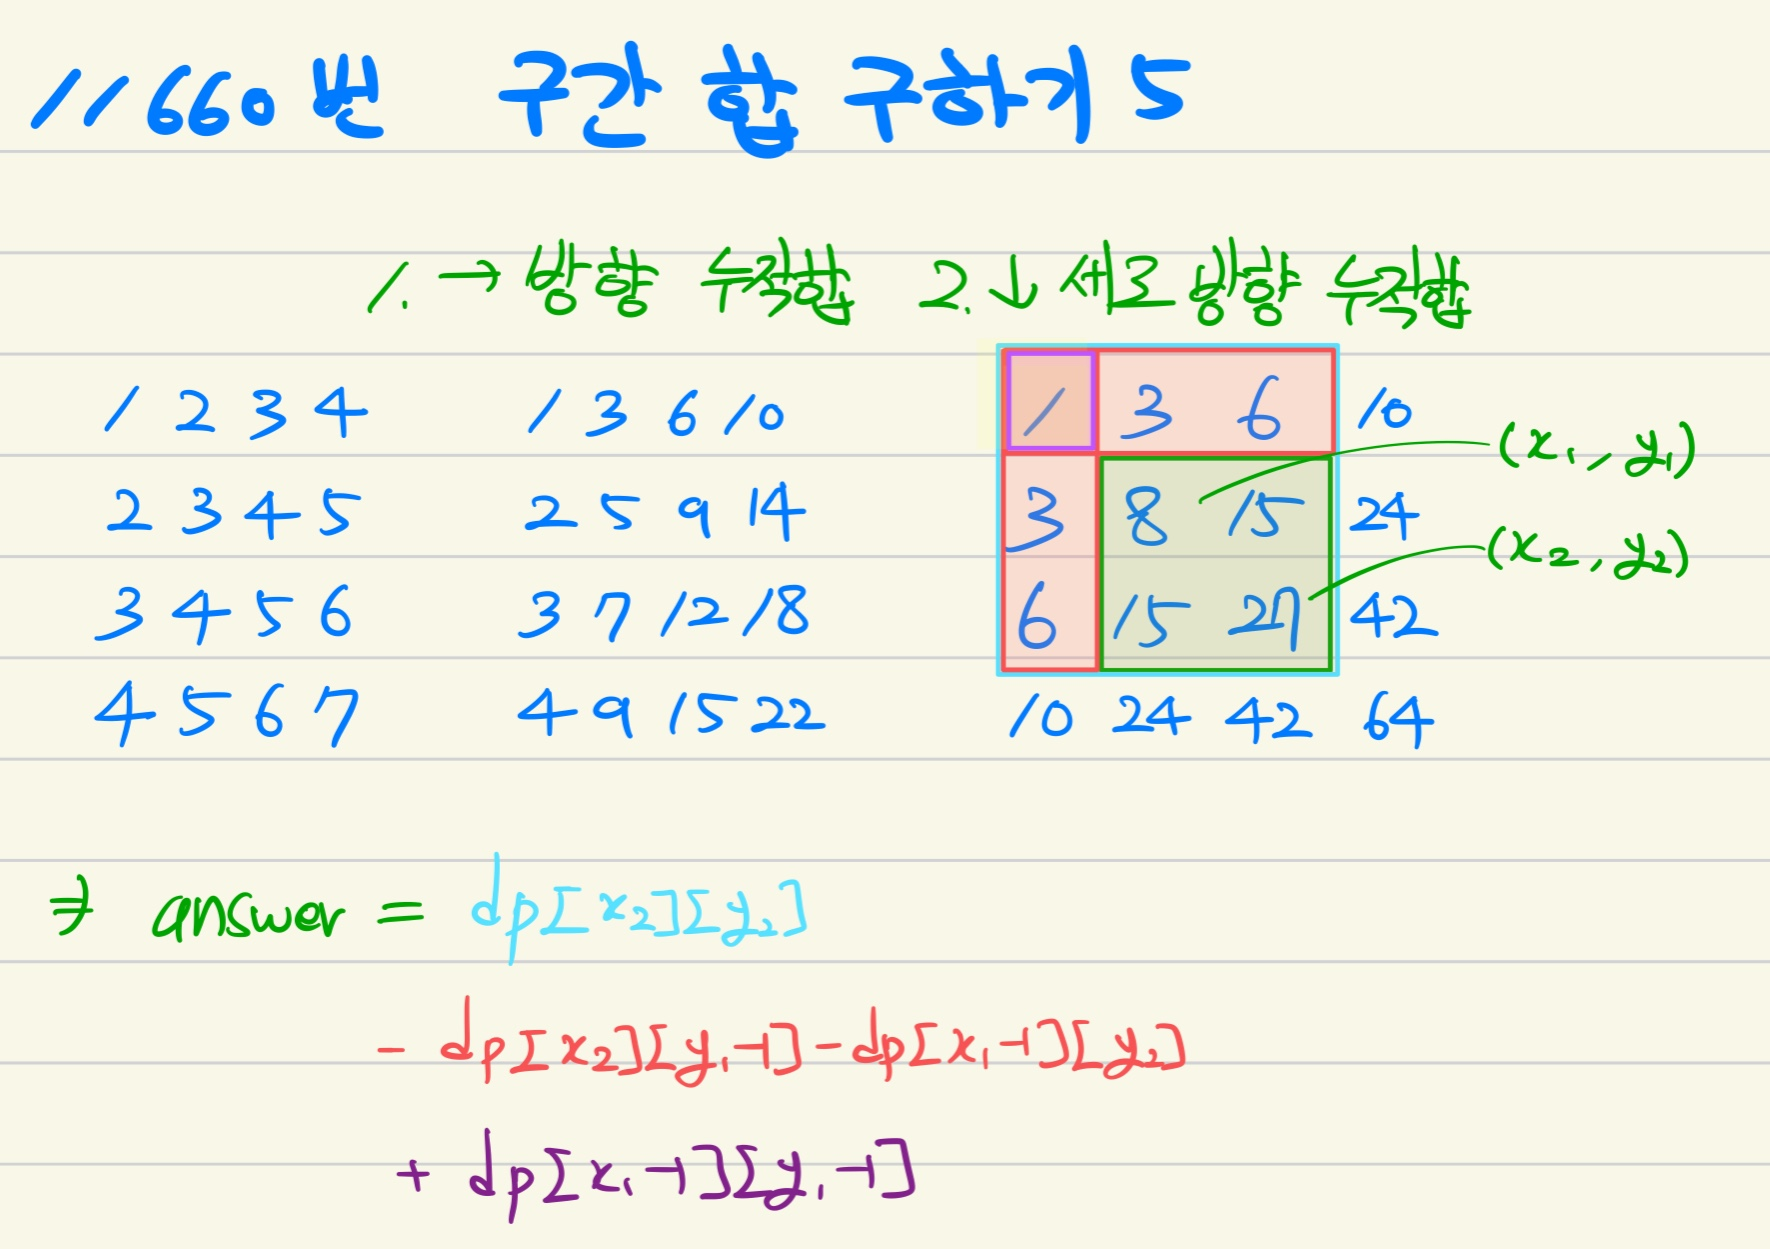 11660번 구간 합 구하기 5
1. →방향 누적합 2. ↓ 세로 방향 누적합
1 2 3 4 1 3 6 10 1 3 6 10 (x₁, y₁)
2 3 4 5 2 5 9 14 3 8 15 24 (x₂, y₂)
3 4 5 6 3 7 12 18 6 15 27 42
4 5 6 7 4 9 15 22 10 24 42 64
⇒ answer = dp[x₂][y₂]
- dp[x₂][y₁-1] - dp[x₁-1][y₂]
+ dp[x₁-1][y₁-1]